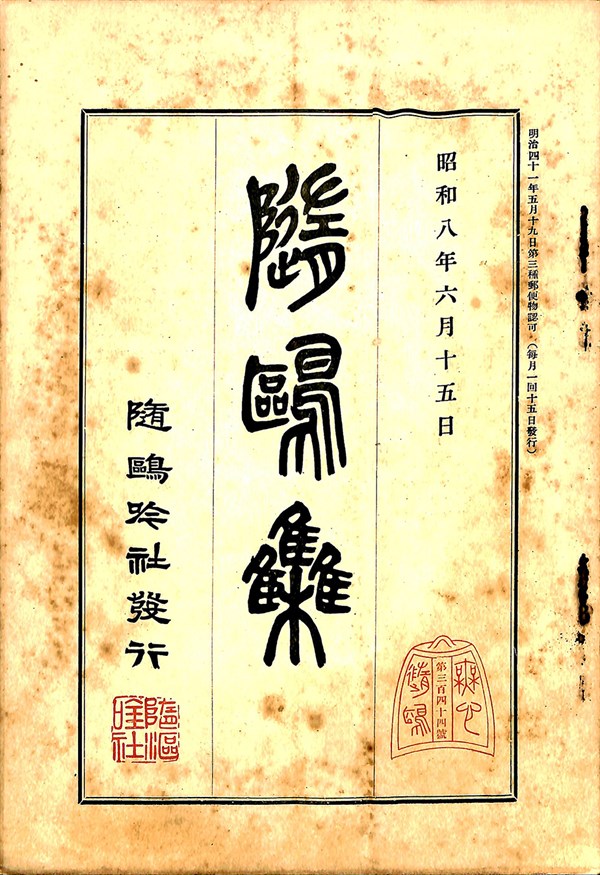 明治四十一年五月十九日第三種郵便物認可（每月一回十五日發行）
昭和八年六月十五日
無心
第三百四十四號
隨鷗
隨鷗集
隨鷗吟社發行